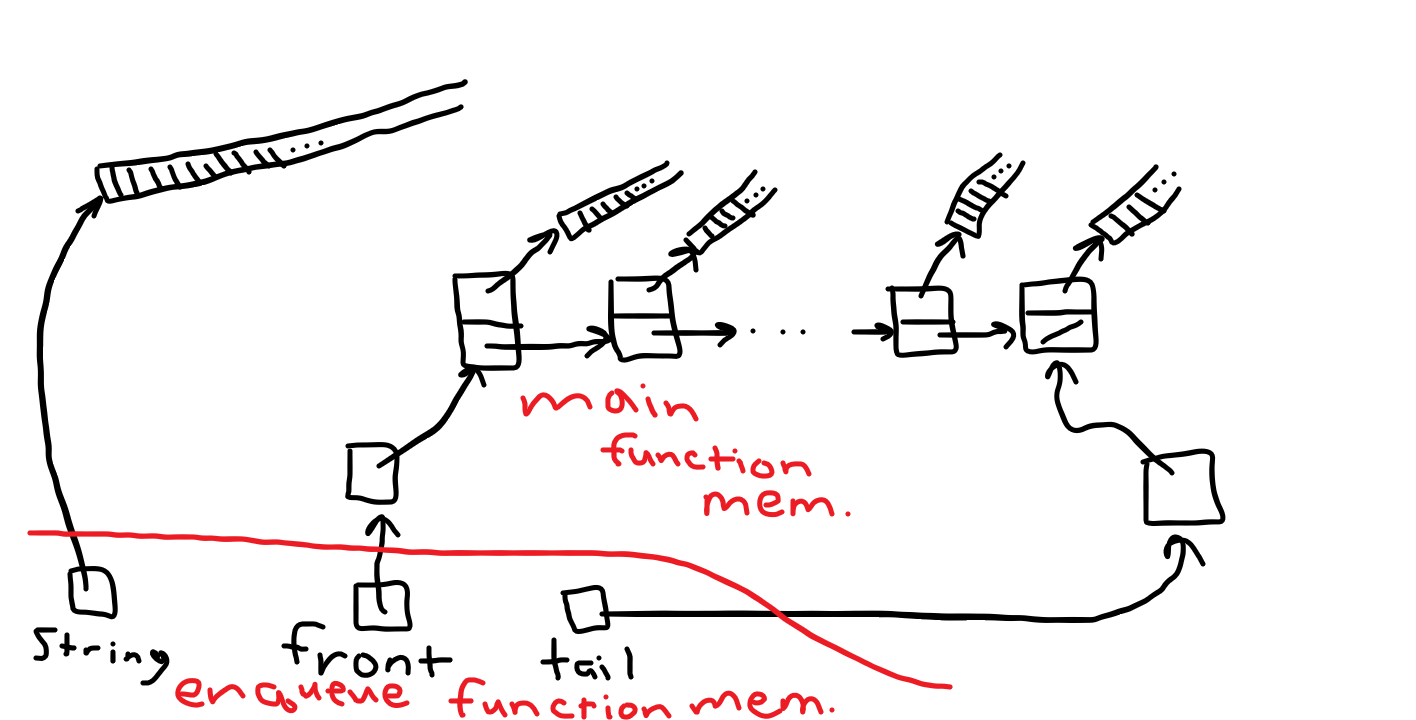 main
function
mem.
string
front
tail
enqueue function mem.